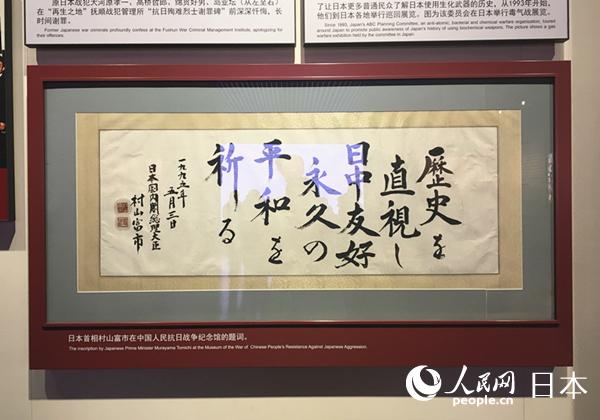 原日本战犯大河原孝一，高桥哲郎，绵贯好男、岛亚坛（从左至右）
在“再生之地”抚顺战犯管理所“抗日殉难烈士谢罪碑”前深深忏悔，长
时间谢罪。
Former Japanese war criminals profoundly confess at the Fushun War Criminal Management Institute, apologizing for
their offenses.
了让日本更多普通民众了解日本使用生化武器的历史，从1993年开始，
他们到日本各地举行巡回展览。图为该委员会在日本举行毒气战展览。
Since 1993, Japan's ABC Planning Committee, an anti-atomic, bacterial and chemical warfare organisation, toured
around Japan to promote public awareness of Japan's history of using biochemical weapons. The picture shows a gas
warfare exhibition held by the committee in Japan.
歴史を
直視し
日中友好
永久の
平和を
祈る
一九九五年
五月三日
日本国内閣総理大臣
村山富市
日本首相村山富市在中国人民抗日战争纪念馆的题词。
The inscription by Japanese Prime Minister Murayama Tomichi at the Museum of the War of Chinese People's Resistance Against Japanese Aggression.
人民网 日本
people.cn